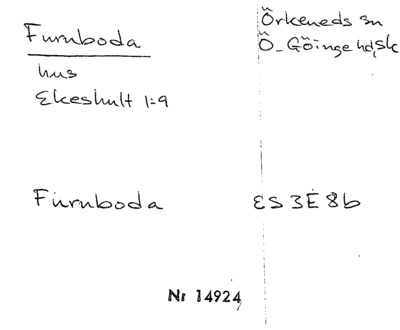 Furuboda
hus
Ekeshult 1:9
Örkeneds sn
Ö-Göinge hd, Sk
Furuboda
ES 3E 8b
Nr 14924